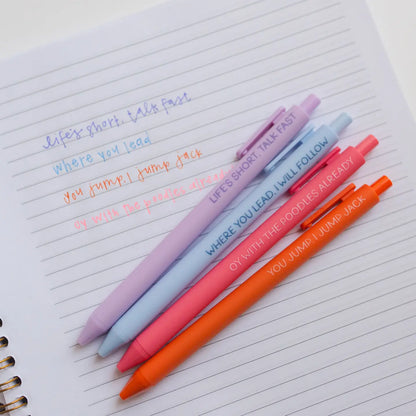 life's short, talk fast
where you lead
you jump, I jump jack
oy with the poodles already
LIFE'S SHORT, TALK FAST
WHERE YOU LEAD, I WILL FOLLOW
OY WITH THE POODLES ALREADY
YOU JUMP, I JUMP JACK